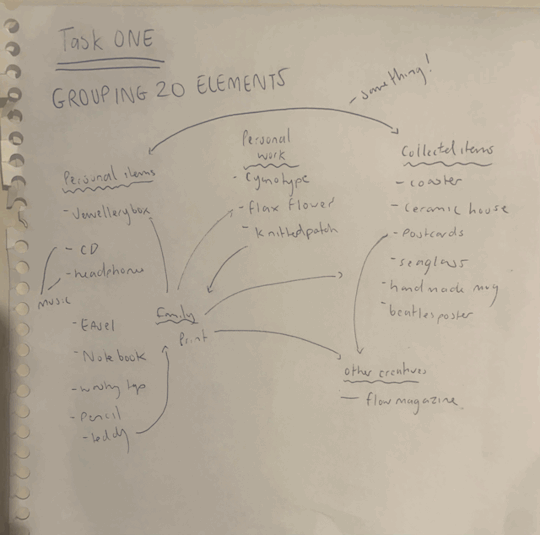 Task ONE
GROUPING 20 ELEMENTS
- something!
Personal items
- Jewellery box
- CD
- headphones
music
- EAsel
- Notebook
- washy tap
- Pencil
- teddy
Personal
work
- Cynotype
- flax flower
- Knitted patch
Family
Print
Collected items
- coaster
- ceramic house
- Postcards
- seaglass
- handmade mug
- beatles poster
other creatives
- flow magazine